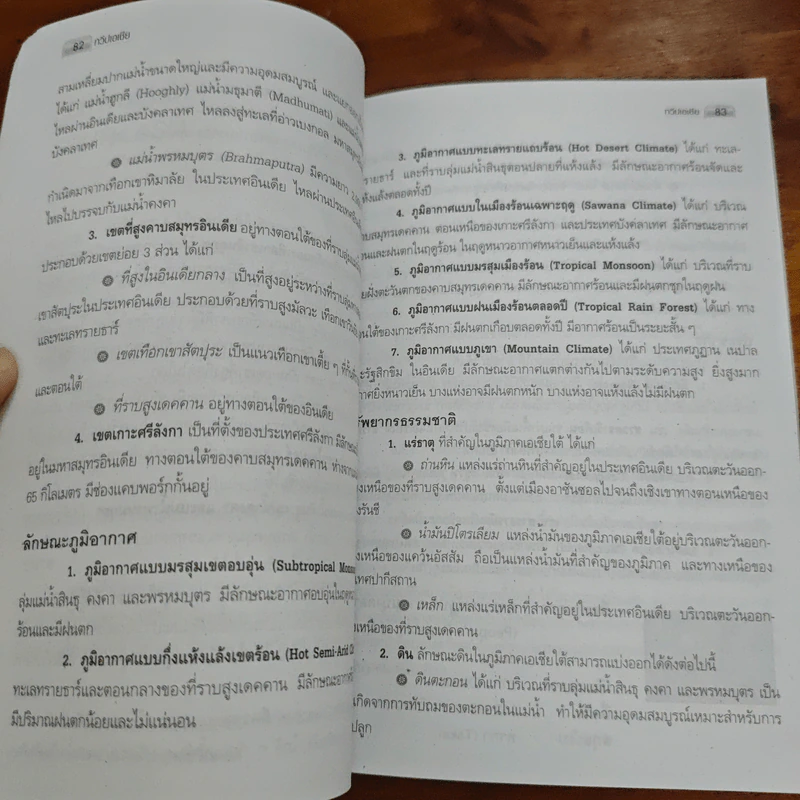 82 ทวีปเอเชีย
สามเหลี่ยมปากแม่น้ำขนาดใหญ่และมีความอุดมสมบูรณ์
ได้แก่ แม่น้ำฮูกลี (Hooghly) แม่น้ำมธุมาตี (Madhumati)
ไหลผ่านอินเดียและบังคลาเทศ ไหลลงสู่ทะเลที่อ่าวเบงกอล
บังคลาเทศ
แม่น้ำพรหมบุตร (Brahmaputra) มีความยาว
กำเนิดมาจากเทือกเขาหิมาลัย ในประเทศอินเดีย
ไหลไปบรรจบกับแม่น้ำคงคา
3. เขตที่สูงคาบสมุทรอินเดีย อยู่ทางตอนใต้ของที่ราบลุ่ม
ประกอบด้วยเขตย่อย 3 ส่วน ได้แก่
ที่สูงในอินเดียกลาง เป็นที่สูงอยู่ระหว่างที่ราบลุ่ม
เขาสัตปุระในประเทศอินเดีย ประกอบด้วยที่ราบสูงมัลวะ
และทะเลทรายธาร์
เขตเทือกเขาสัตปุระ เป็นแนวเทือกเขาเตี้ย ๆ
และตอนใต้
ที่ราบสูงเดคคาน อยู่ทางตอนใต้ของอินเดีย
4. เขตเกาะศรีลังกา เป็นที่ตั้งของประเทศศรีลังกา
อยู่ในมหาสมุทรอินเดีย ทางตอนใต้ของคาบสมุทรเดคคาน
65 กิโลเมตร มีช่องแคบพอร์กกั้นอยู่
ลักษณะภูมิอากาศ
1. ภูมิอากาศแบบมรสุมเขตอบอุ่น (Subtropical
ลุ่มแม่น้ำสินธุ คงคา และพรหมบุตร มีลักษณะอากาศอบอุ่น
ร้อนและมีฝนตก
2. ภูมิอากาศแบบกึ่งแห้งแล้งเขตร้อน (Hot Semi-Arid
ทะเลทรายธาร์และตอนกลางของที่ราบสูงเดคคาน
มีปริมาณฝนตกน้อยและไม่แน่นอน
ทวีปเอเชีย 83
3. ภูมิอากาศแบบทะเลทรายแถบร้อน (Hot Desert Climate) ได้แก่ ทะเล-
รายธาร์ และที่ราบลุ่มแม่น้ำสินธุตอนปลายที่แห้งแล้ง มีลักษณะอากาศร้อนจัดและ
ห้งแล้งตลอดทั้งปี
4. ภูมิอากาศแบบในเมืองร้อนเฉพาะฤดู (Sawana Climate) ได้แก่ บริเวณ
าบสมุทรเดคคาน ตอนเหนือของเกาะศรีลังกา และประเทศบังคลาเทศ มีลักษณะอากาศ
นและฝนตกในฤดูร้อน ในฤดูหนาวอากาศหนาวเย็นและแห้งแล้ง
5. ภูมิอากาศแบบมรสุมเมืองร้อน (Tropical Monsoon) ได้แก่ บริเวณที่ราบ
ยฝั่งตะวันตกของคาบสมุทรเดคคาน มีลักษณะอากาศร้อนและมีฝนตกชุกในฤดูฝน
6. ภูมิอากาศแบบฝนเมืองร้อนตลอดปี (Tropical Rain Forest) ได้แก่ ทาง
อนใต้ของเกาะศรีลังกา มีฝนตกเกือบตลอดทั้งปี มีอากาศร้อนเป็นระยะสั้น ๆ
7. ภูมิอากาศแบบภูเขา (Mountain Climate) ได้แก่ ประเทศภูฏาน เนปาล
ะรัฐสิกขิม ในอินเดีย มีลักษณะอากาศแตกต่างกันไปตามระดับความสูง ยิ่งสูงมาก
ากาศยิ่งหนาวเย็น บางแห่งอาจมีฝนตกหนัก บางแห่งอาจแห้งแล้งไม่มีฝนตก
รัพยากรธรรมชาติ
1. แร่ธาตุ ที่สำคัญในภูมิภาคเอเชียใต้ ได้แก่
ถ่านหิน แหล่งแร่ถ่านหินที่สำคัญอยู่ในประเทศอินเดีย บริเวณตะวันออก-
ยงเหนือของที่ราบสูงเดคคาน ตั้งแต่เมืองอาซันซอลไปจนถึงเชิงเขาทางตอนเหนือของ
งรันชี
น้ำมันปิโตรเลียม แหล่งน้ำมันของภูมิภาคเอเชียใต้อยู่บริเวณตะวันออก-
ยงเหนือของแคว้นอัสสัม ถือเป็นแหล่งน้ำมันที่สำคัญของภูมิภาค และทางเหนือของ
เทศปากีสถาน
เหล็ก แหล่งแร่เหล็กที่สำคัญอยู่ในประเทศอินเดีย บริเวณตะวันออก-
ยงเหนือของที่ราบสูงเดคคาน
2. ดิน ลักษณะดินในภูมิภาคเอเชียใต้สามารถแบ่งออกได้ดังต่อไปนี้
ดินตะกอน ได้แก่ บริเวณที่ราบลุ่มแม่น้ำสินธุ คงคา และพรหมบุตร เป็น
เกิดจากการทับถมของตะกอนในแม่น้ำ ทำให้มีความอุดมสมบูรณ์เหมาะสำหรับการ
ปลูก